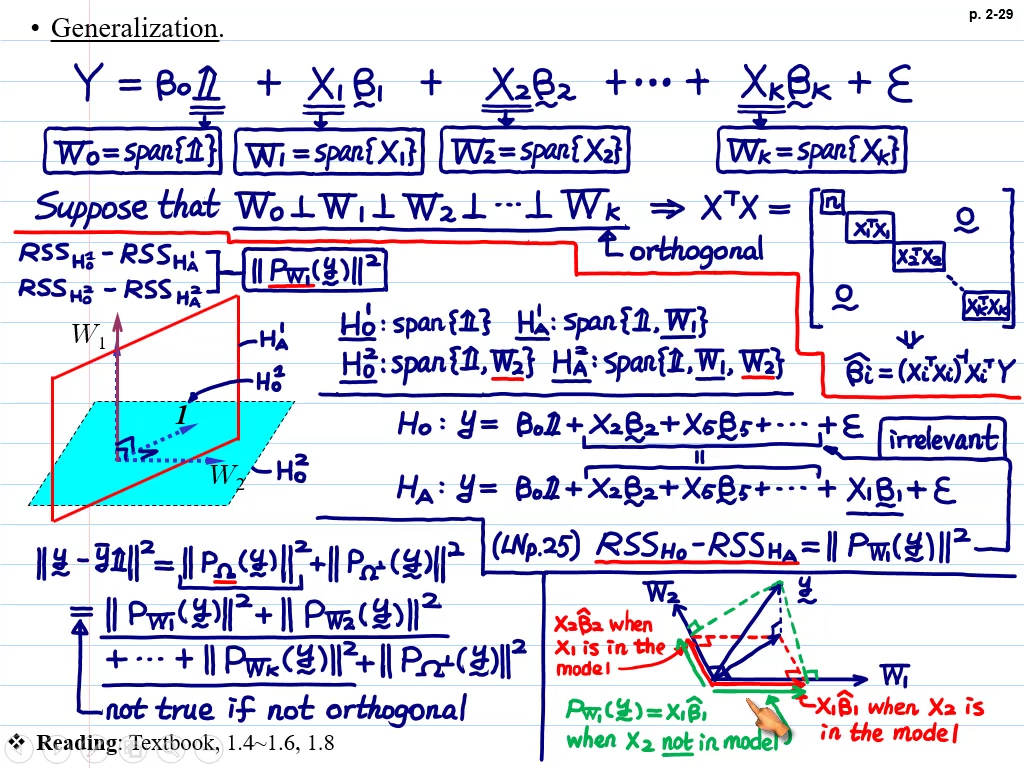 p. 2-29
• Generalization.
Y = β₀𝟙 + X₁β₁ + X₂β₂ + ⋯ + Xₖβₖ + ε
W₀=span{𝟙} W₁=span{X₁} W₂=span{X₂} Wₖ=span{Xₖ}
Suppose that W₀⊥W₁⊥W₂⊥⋯⊥Wₖ ⇒ XᵀX =
orthogonal
n
X₁ᵀX₁ 0
X₂ᵀX₂
0 XₖᵀXₖ
⇓
β̂ᵢ=(XᵢᵀXᵢ)⁻¹XᵢᵀY
RSS_{H₀¹} − RSS_{H_A¹}
RSS_{H₀²} − RSS_{H_A²}
‖P_{W₁}(y)‖²
H₀¹: span{𝟙} H_A¹: span{𝟙, W₁}
H₀²: span{𝟙, W₂} H_A²: span{𝟙, W₁, W₂}
W₁
H_A¹
H₀¹
1
W₂
H₀²
H₀: y = β₀𝟙+X₂β₂+X₅β₅+⋯+ε
irrelevant
=
H_A: y = β₀𝟙+X₂β₂+X₅β₅+⋯+X₁β₁+ε
(LNp.25) RSS_{H₀}−RSS_{H_A}=‖P_{W₁}(y)‖²
‖y−ȳ𝟙‖²=‖P_Ω(y)‖²+‖P_{Ω⊥}(y)‖²
=‖P_{W₁}(y)‖²+‖P_{W₂}(y)‖²
+⋯+‖P_{Wₖ}(y)‖²+‖P_{Ω⊥}(y)‖²
not true if not orthogonal
W₂
y
X₂β̂₂ when
X₁ is in the
model
W₁
P_{W₁}(y)=X₁β̂₁
when X₂ not in model
X₁β̂₁ when X₂ is
in the model
❖ Reading: Textbook, 1.4~1.6, 1.8